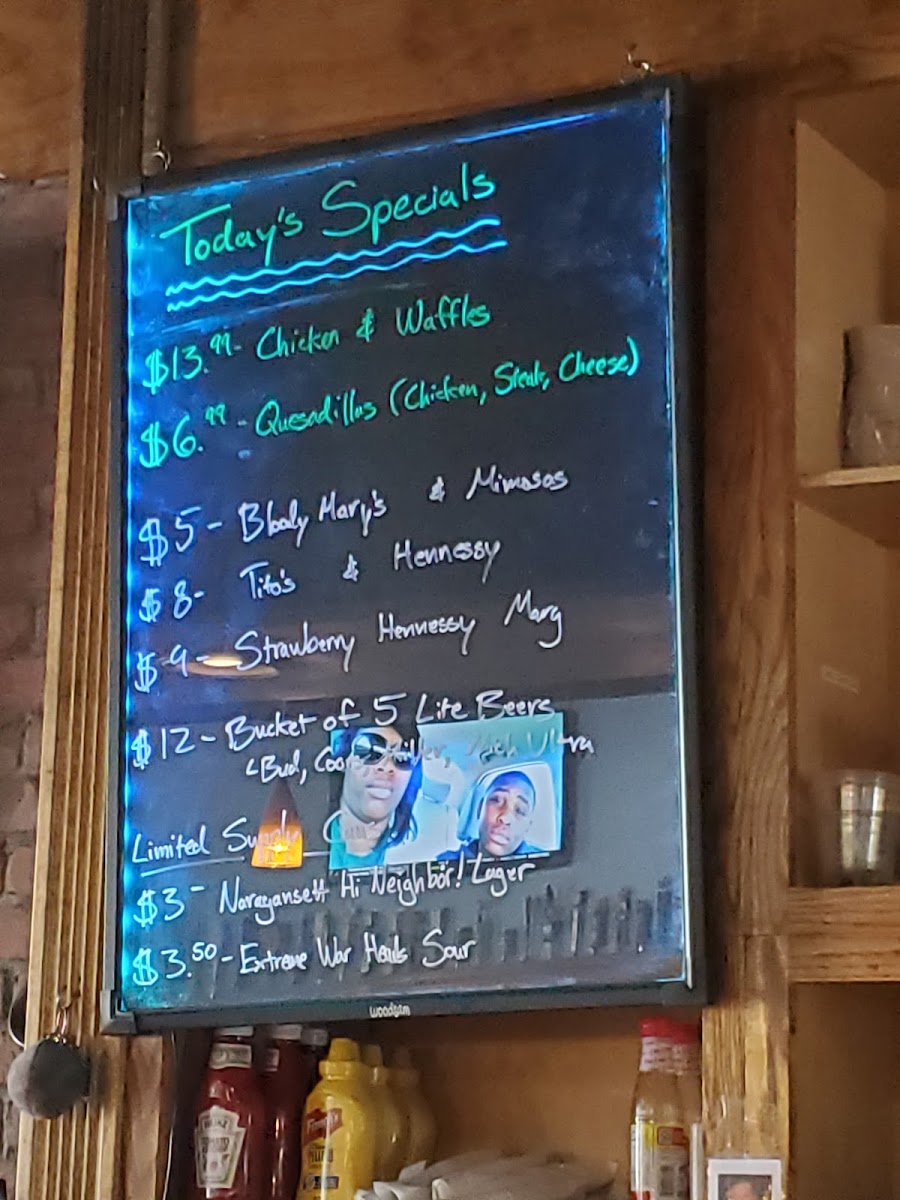 Today's Specials
$13.99- Chicken & Waffles
$6.99 - Quesadillas (Chicken, Steak, Cheese)
$5 - Bloody Mary's & Mimosas
$8- Tito's & Hennessy
$9 - Strawberry Hennessy Marg
$12 - Bucket of 5 Lite Beers
Bud, Coors, Miller, Mich Ultra
Limited Supply Cans
$3 - Naragansett Hi Neighbor! Lager
$3.50 - Extreme War Heads Sour
woodsam
HEINZ
TOMATO
French's